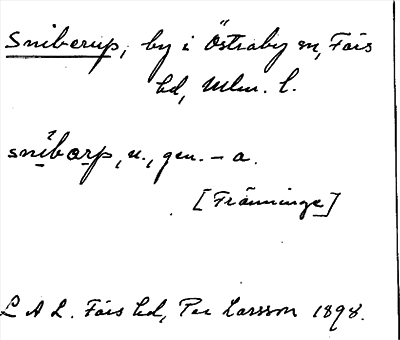 Sniberup, by i Östraby sn, Färs
hd, Mlm. l.
snibarp, n., gen. – a.
[Fränninge]
L A L. Färs hd, Per Larsson 1898.